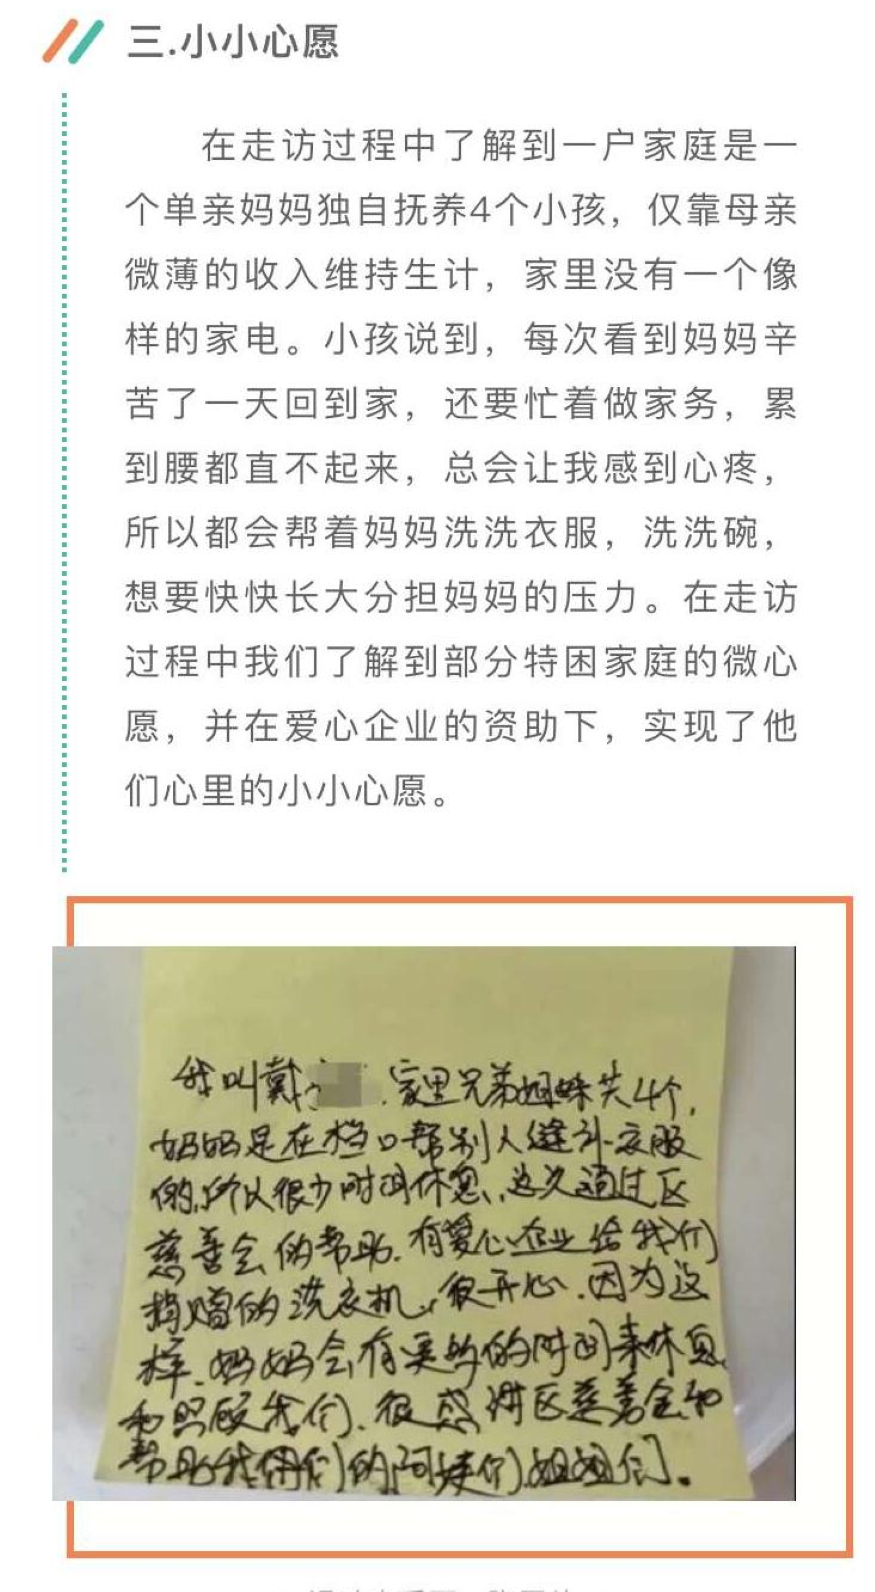 三.小小心愿
在走访过程中了解到一户家庭是一
个单亲妈妈独自抚养4个小孩，仅靠母亲
微薄的收入维持生计，家里没有一个像
样的家电。小孩说到，每次看到妈妈辛
苦了一天回到家，还要忙着做家务，累
到腰都直不起来，总会让我感到心疼，
所以都会帮着妈妈洗洗衣服，洗洗碗，
想要快快长大分担妈妈的压力。在走访
过程中我们了解到部分特困家庭的微心
愿，并在爱心企业的资助下，实现了他
们心里的小小心愿。
我叫戴 家里兄弟姐妹共4个,
妈妈是在档口帮别人缝补衣服
的,所以很少时间休息,这次通过区
慈善会的帮助.有爱心企业给我们
捐赠的洗衣机,很开心.因为这
样.妈妈会有更多的时间来休息
和照顾我们.很感谢区慈善会和
帮助我们的阿姨们姐姐们.